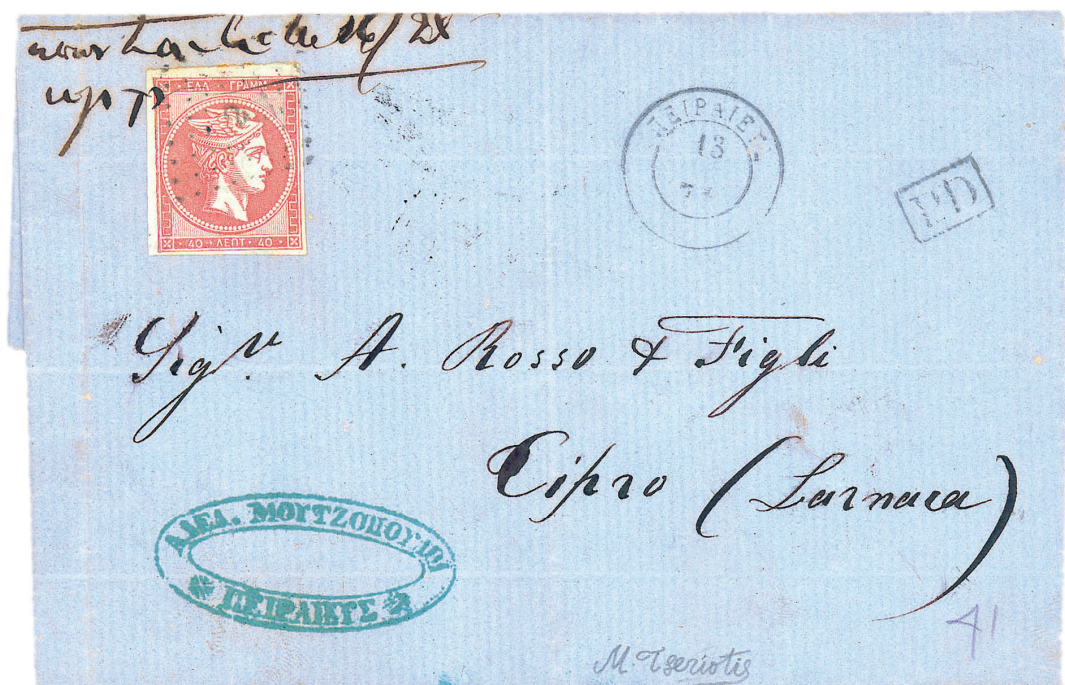 ΕΛΛ ΓΡΑΜΜ
40 ΛΕΠΤ 40
ΠΕΙΡΑΙΕΥΣ
13
PD
Sigri A. Rosso & Figli
Cipro (Larnaca)
ΑΔΕΛ. ΜΟΥΤΖΟΠΟΥΛΟΙ
ΠΕΙΡΑΙΕΥΣ
41
M. Tseriotis